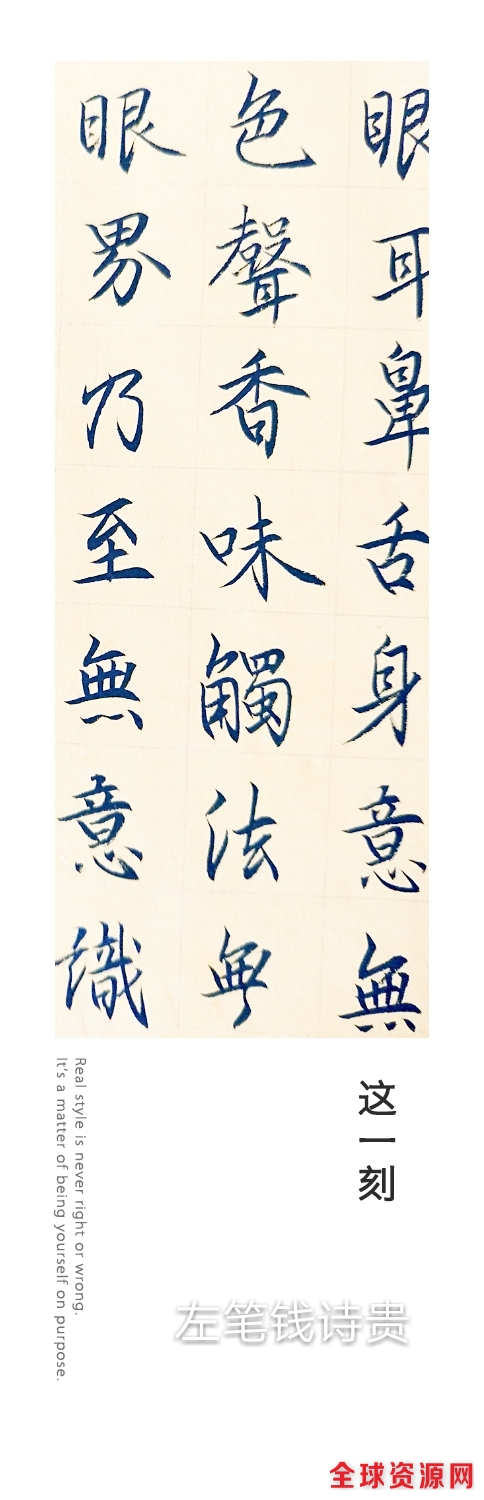 眼耳鼻舌身意無
色聲香味觸法無
眼界乃至無意識
这一刻
Real style is never right or wrong.
It's a matter of being yourself on purpose.
左笔钱诗贵
全球资源网